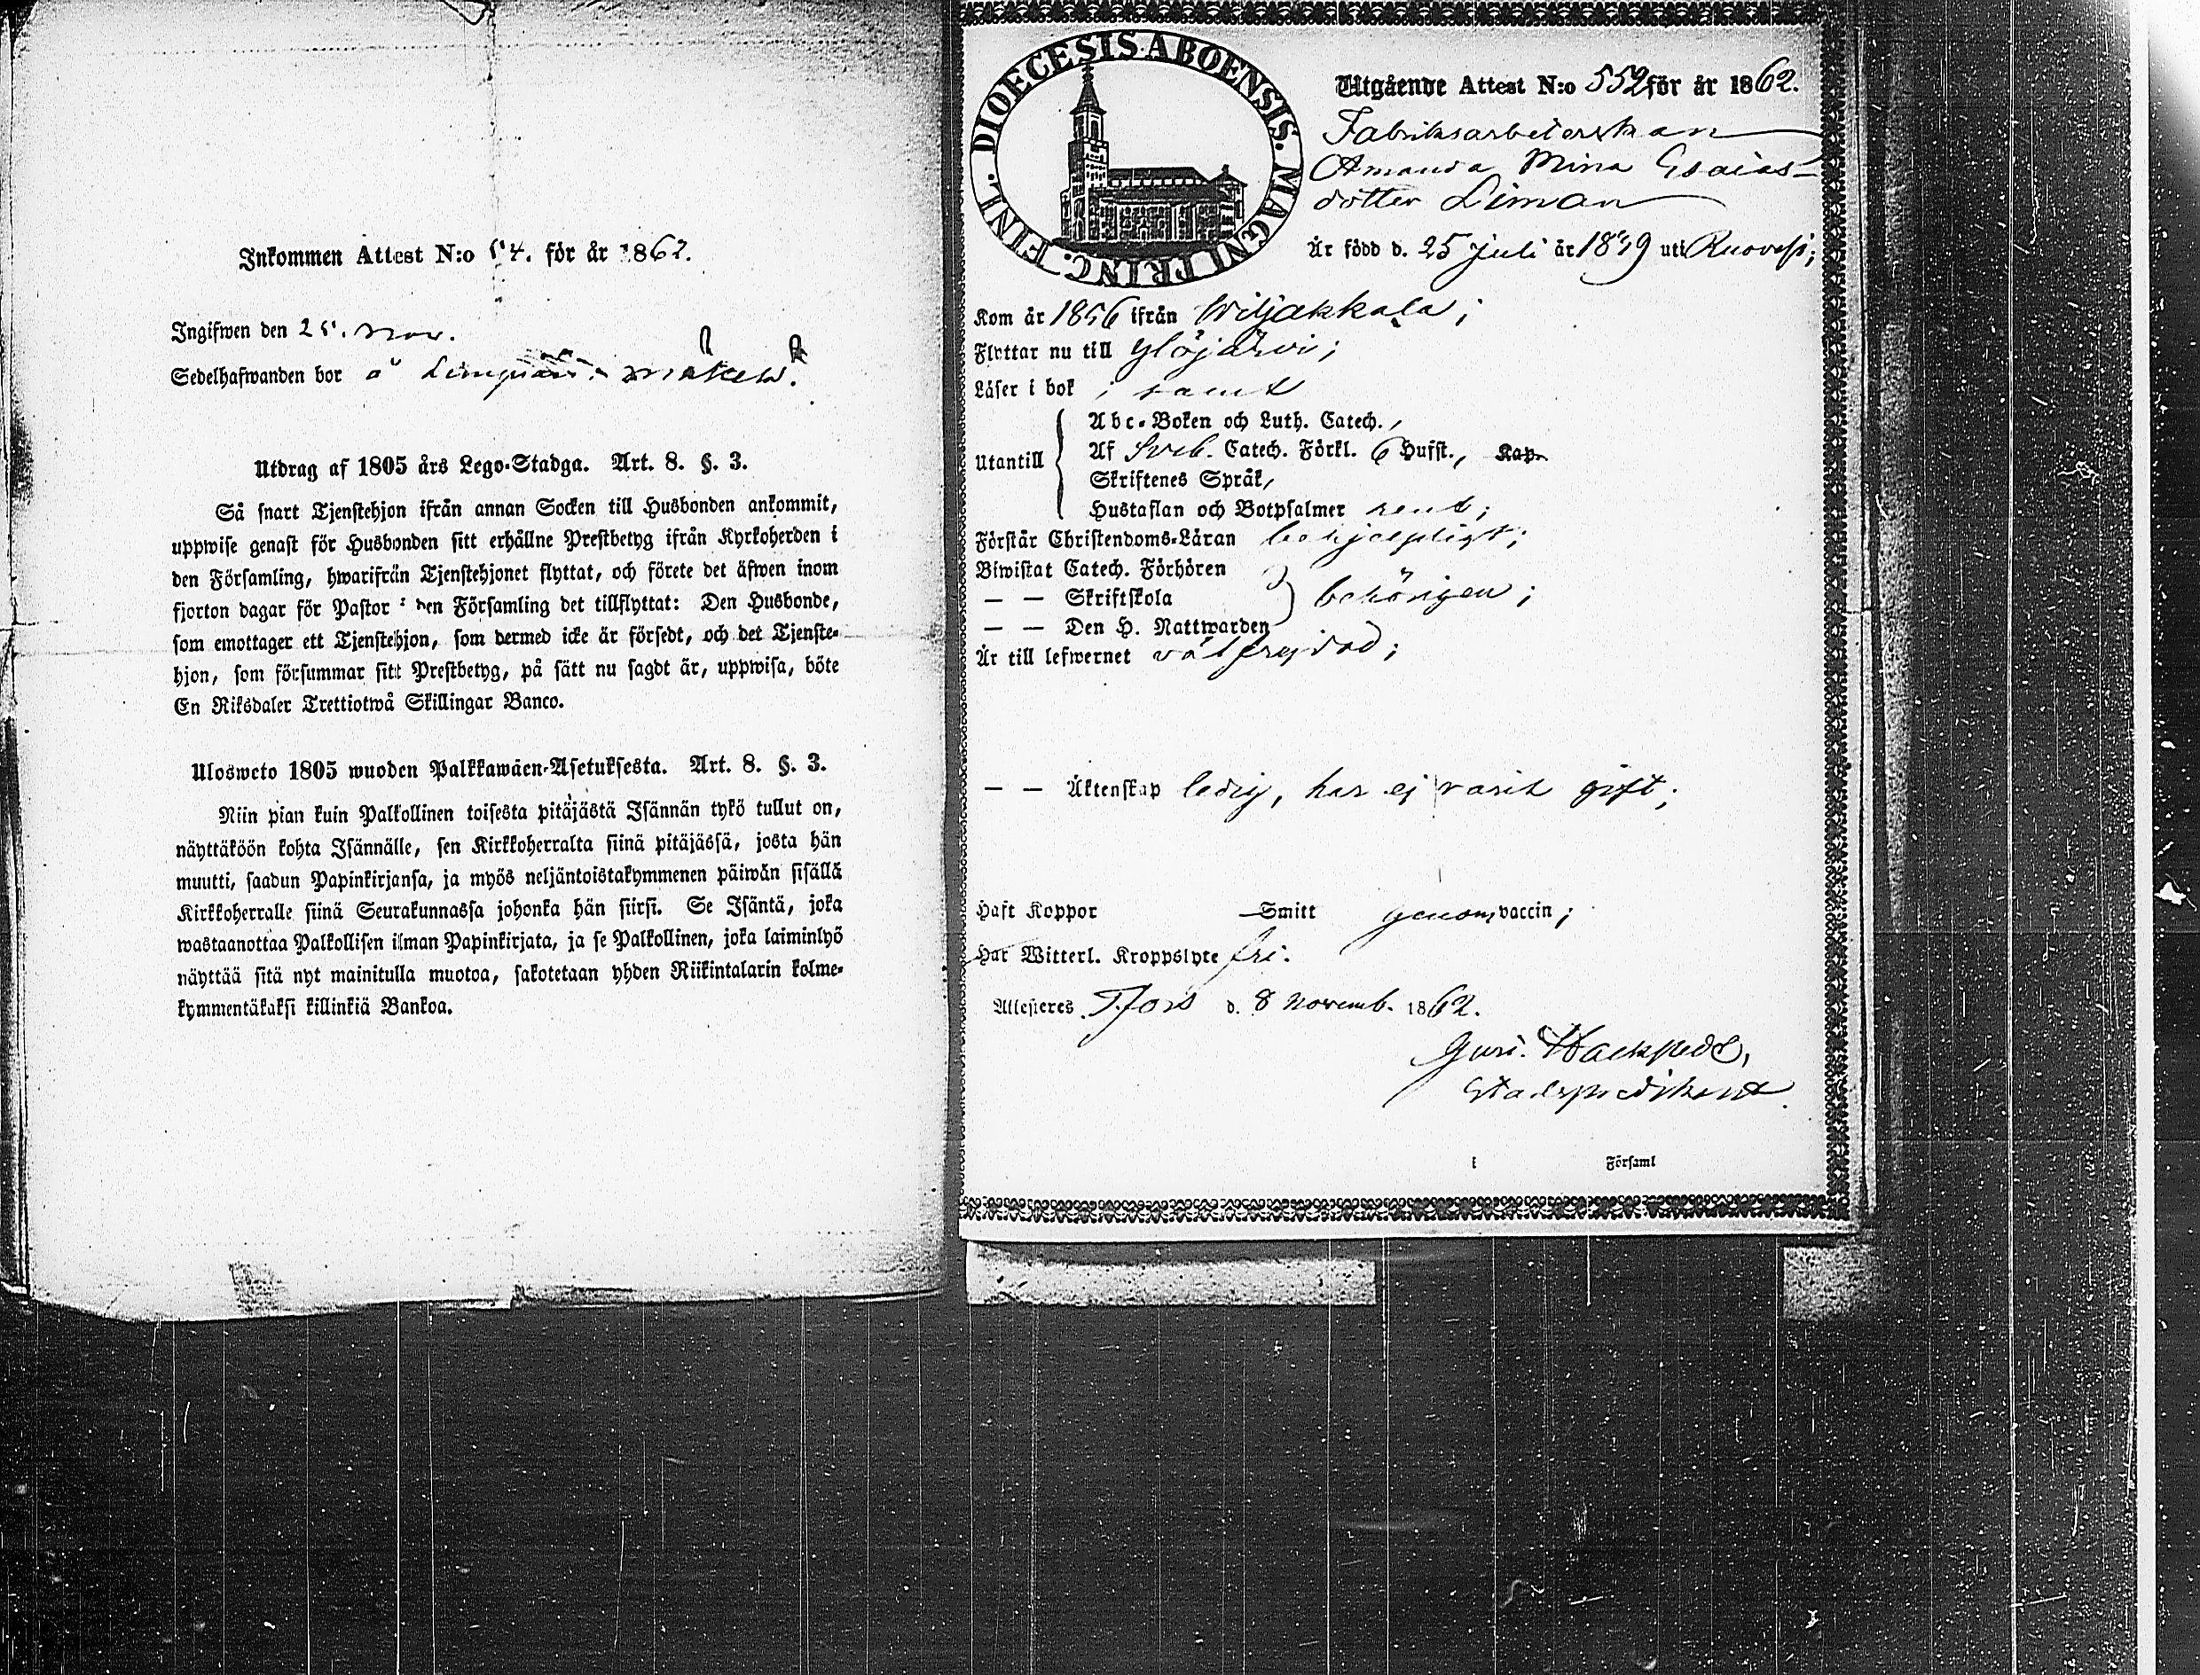 Inkommen Attest N:o 54. för år 1862.
Ingifwen den 25. Nov.
Sedelhafwanden bor å
Utdrag af 1805 års Lego-Stadga. Art. 8. §. 3.
Så snart Tjenstehjon ifrån annan Socken till Husbonden ankommit,
uppwise genast för Husbonden sitt erhållne Prestbetyg ifrån Kyrkoherden i
den Församling, hwarifrån Tjenstehjonet flyttat, och förete det äfwen inom
fjorton dagar för Pastor i den Församling det tillflyttat: Den Husbonde,
som emottager ett Tjenstehjon, som dermed icke är försedt, och det Tjenste-
hjon, som försummar sitt Prestbetyg, på sätt nu sagdt är, uppwisa, böte
En Riksdaler Trettiotwå Skillingar Banco.
Ulosweto 1805 wuoden Palkkawäen-Asetuksesta. Art. 8. §. 3.
Niin pian kuin Palkollinen toisesta pitäjästä Isännän tykö tullut on,
näyttäköön kohta Isännälle, sen Kirkkoherralta siinä pitäjässä, josta hän
muutti, saadun Papinkirjansa, ja myös neljäntoistakymmenen päiwän sisällä
Kirkkoherralle siinä Seurakunnassa johonka hän siirsi. Se Isäntä, joka
wastaanottaa Palkollisen ilman Papinkirjata, ja se Palkollinen, joka laiminlyö
näyttää sitä nyt mainitulla muotoa, sakotetaan yhden Riikintalarin kolme-
kymmentäkaksi killinkiä Bankoa.
DIOECESIS ABOENSIS. MAGNI PRINC. FINL.
Utgående Attest N:o 552 för år 1862.
Fabriksarbeterskan
Amanda Mina Esaias-
dotter Liman
Är född d. 25 Juli år 1839 uti Ruovesi;
Kom år 1856 ifrån Wiljakkala;
Flyttar nu till Ylöjärvi;
Läser i bok ; samt
Utantill
Abc-Boken och Luth. Catech.,
Af Sveb. Catech. Förkl. 6 Hufst., Kap.
Skriftenes Språk,
Hustaflan och Botpsalmer rent;
Förstår Christendoms-Läran behjelpligt;
Biwistat Catech. Förhören
— — Skriftskola behörigen;
— — Den H. Nattwarden
Är till lefwernet välfrejdad;
— — Äktenskap ledig, har ej varit gift;
Haft Koppor Smitt genom vaccin;
Har Witterl. Kroppslyte fri.
Attesteres T.fors d. 8 Novemb. 1862.
Gust. Hackstedt,
Stadspredikant.
i Församl